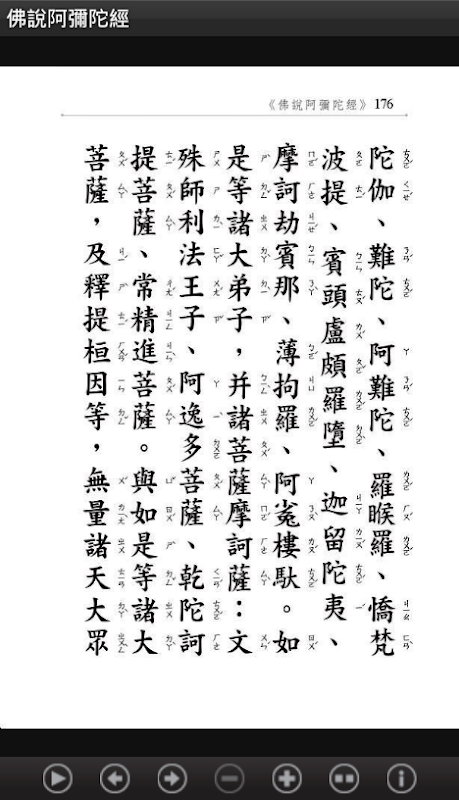 佛說阿彌陀經
《佛說阿彌陀經》 176
陀伽、難陀、阿難陀、羅睺羅、憍梵
波提、賓頭盧頗羅墮、迦留陀夷、
摩訶劫賓那、薄拘羅、阿㝹樓馱。如
是等諸大弟子，并諸菩薩摩訶薩：文
殊師利法王子、阿逸多菩薩、乾陀訶
提菩薩、常精進菩薩。與如是等諸大
菩薩，及釋提桓因等，無量諸天大眾